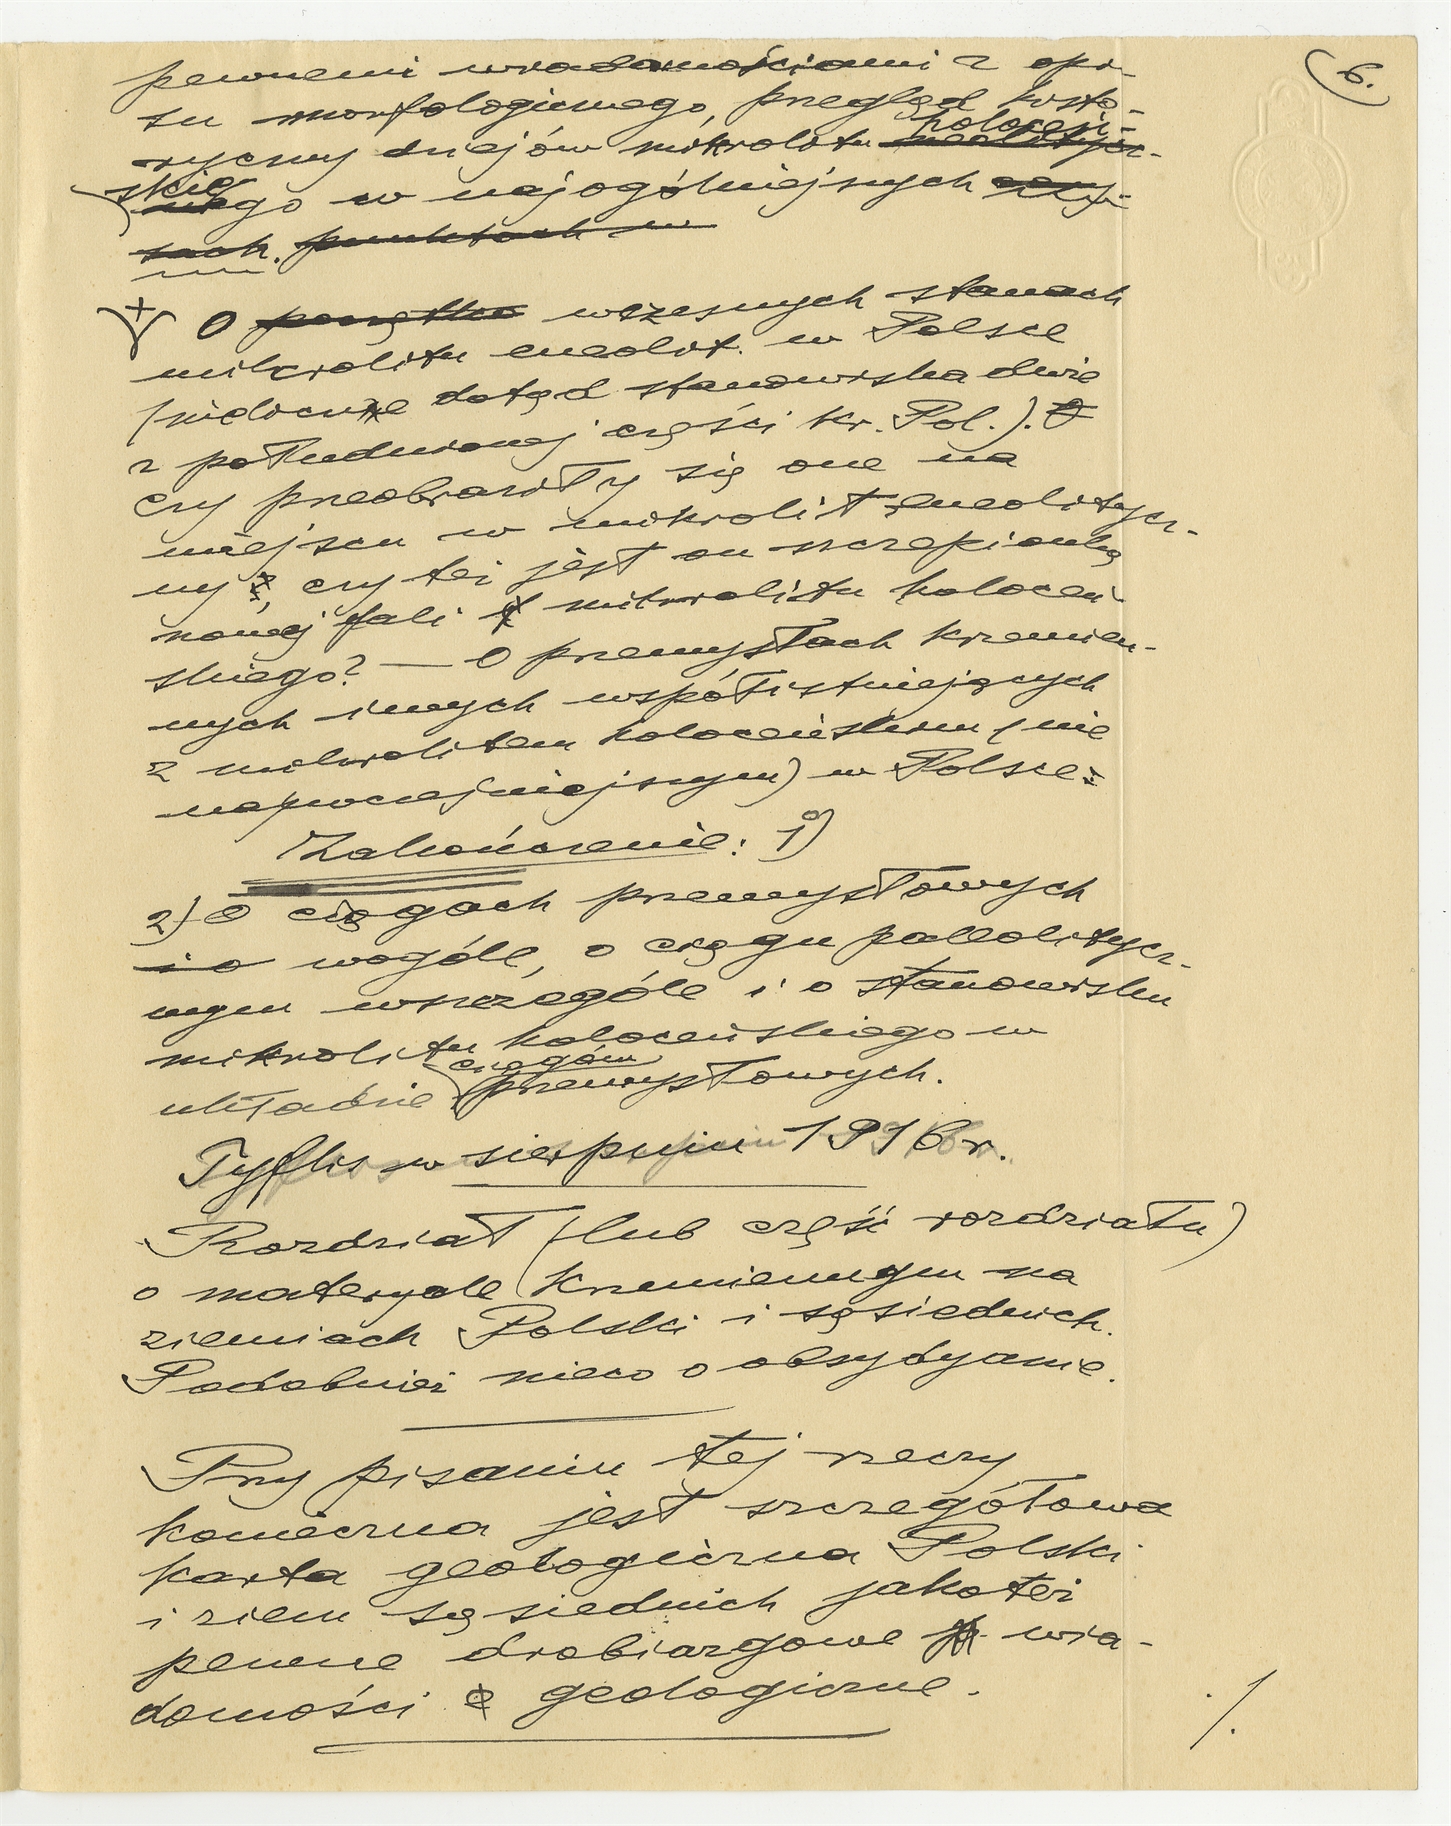 6.
pewnemi wiadomościami z opi-
su morfologicznego, przegląd histo-
ryczny dziejów mikrolitu holoceń-
skiego w najogólniejszych rzy-
sach. punktach w
O początku wczesnych stanach
mikrolitu eneolit. w Polsce
(widoczne dotąd stanowiska dwie
z południowej części Kr. Pol.).
czy przeobraziły się one na
miejscu w mikrolit eneolitycz-
ny, czy też jest on szczepionką
nowej fali mikrolitu holoceń-
skiego? — O przemysłach krzemien-
nych innych współistniejących
z mikrolitem holoceńskim (nie
najpóźniejszym) w Polsce.
Zakończenie: 1)
2) O ciągach przemysłowych
i o wogóle, o ciągu paleolitycz-
nym wszczególe i o stanowisku
mikrolitu holoceńskiego w
układzie ciągów przemysłowych.
Tyflis w sierpniu 1916 r.
Rozdział (lub część rozdziału)
o materyale krzemiennym na
ziemiach Polski i sąsiednich.
Podobnież nieco o obsydyanie.
Przy pisaniu tej rzeczy
konieczna jest szczegółowa
karta geologiczna Polski
i ziem sąsiednich jakoteż
pewne drobiazgowe wia-
domości geologiczne.
./.